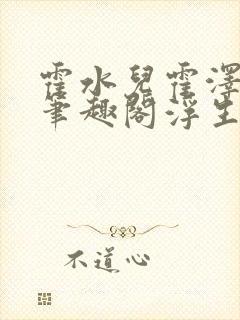 霍水兒霍澤
筆趣閣浮生
不道心